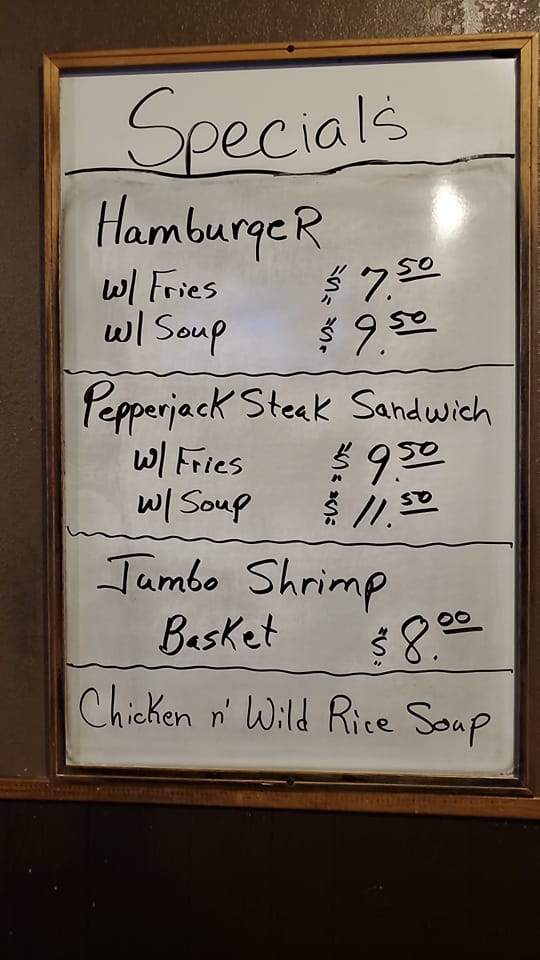 Specials
HamburgeR
w/ Fries $ 7.50
w/ Soup $ 9.50
Pepperjack Steak Sandwich
w/ Fries $ 9.50
w/ Soup $ 11.50
Jumbo Shrimp
Basket $ 8.00
Chicken n' Wild Rice Soup